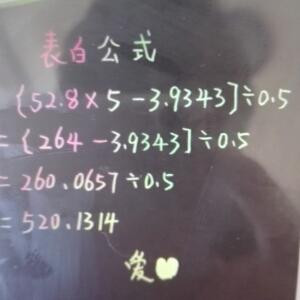 表白公式
{52.8×5-3.9343]÷0.5
={264-3.9343]÷0.5
=260.0657÷0.5
=520.1314
爱